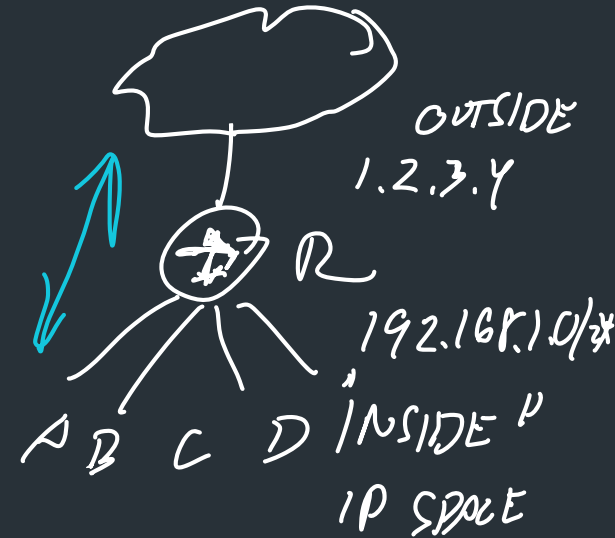 OUTSIDE
1.2.3.4
R
192.168.1.0/24
A B C D "INSIDE"
IP SPACE